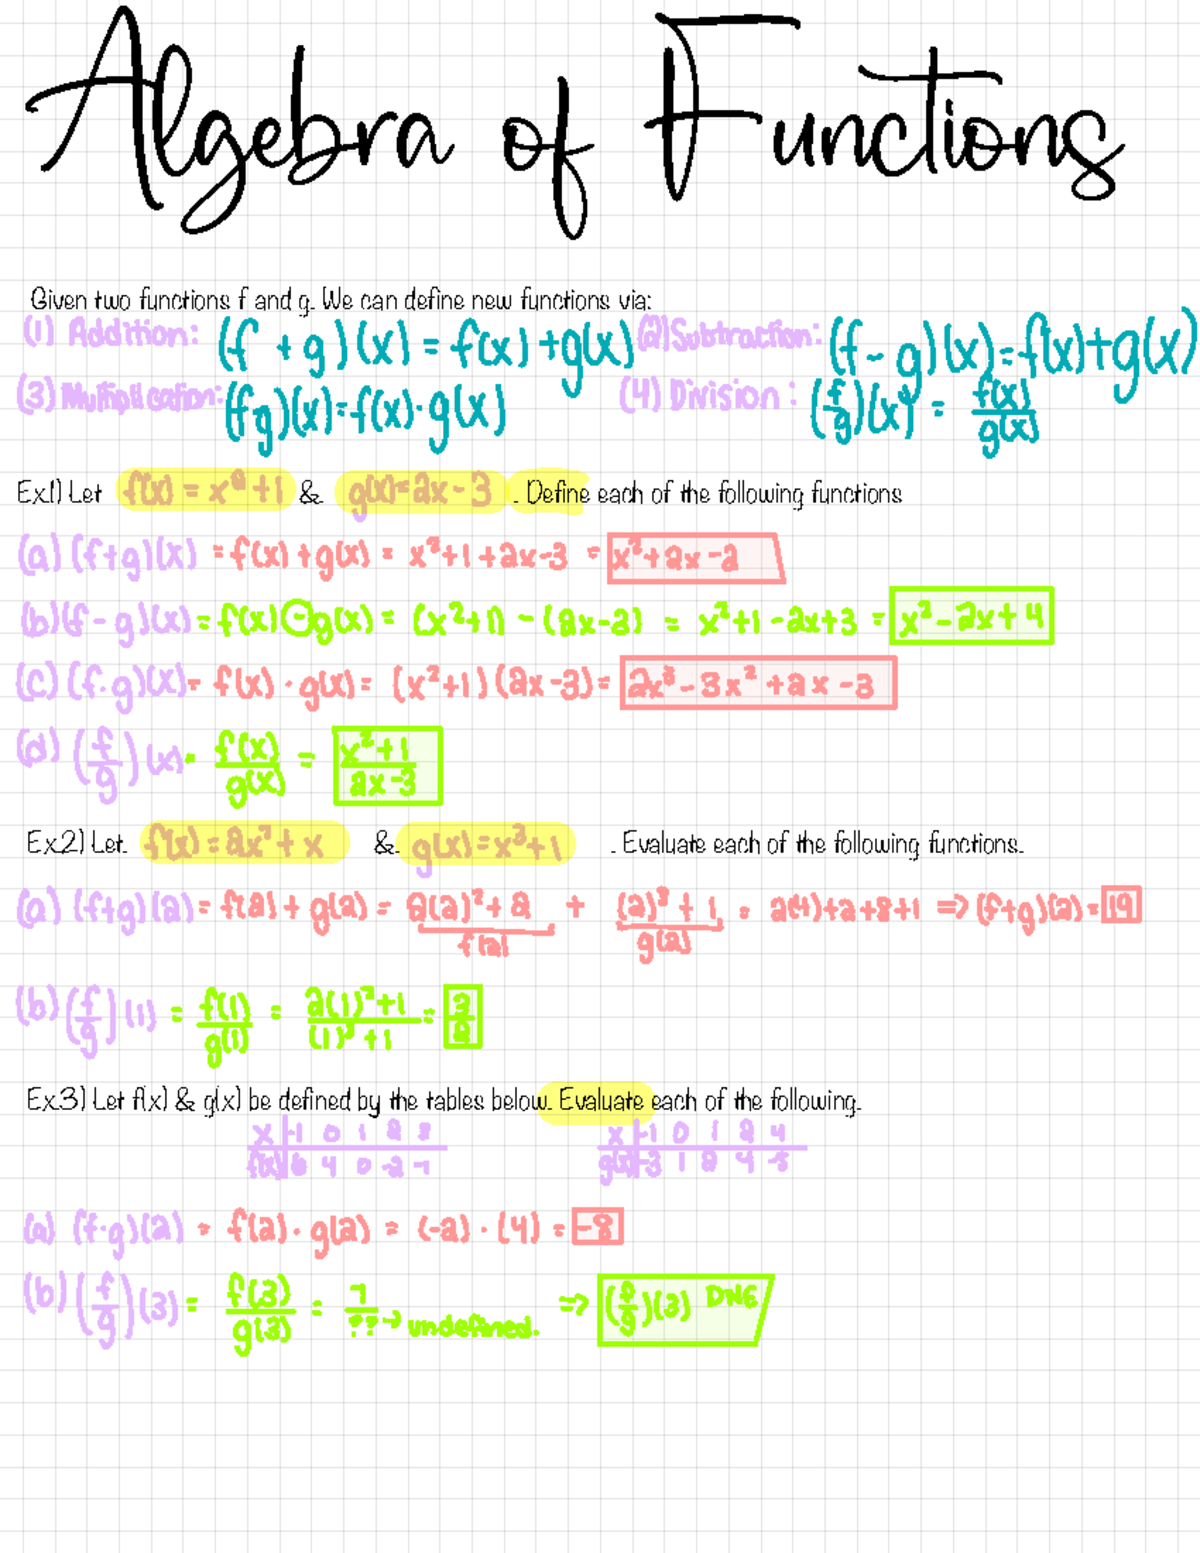 Algebra of Functions
Given two functions f and g. We can define new functions via:
(1) Addition: (f + g)(x) = f(x) + g(x) (2) Subtraction: (f - g)(x) = f(x) + g(x)
(3) Multiplication: (fg)(x) = f(x) · g(x) (4) Division: (f/g)(x) = f(x)/g(x)
Ex.1) Let f(x) = x² + 1 & g(x) = 2x - 3. Define each of the following functions
(a) (f+g)(x) = f(x) + g(x) = x² + 1 + 2x - 3 = x² + 2x - 2
(b) (f - g)(x) = f(x) - g(x) = (x² + 1) - (2x - 3) = x² + 1 - 2x + 3 = x² - 2x + 4
(c) (f·g)(x) = f(x) · g(x) = (x² + 1)(2x - 3) = 2x³ - 3x² + 2x - 3
(d) (f/g)(x) = f(x)/g(x) = x² + 1/2x - 3
Ex.2) Let f(x) = 2x² + x & g(x) = x³ + 1. Evaluate each of the following functions.
(a) (f+g)(2) = f(2) + g(2) = 2(2)² + 2 + (2)³ + 1 = 2(4) + 2 + 8 + 1 => (f+g)(2) = 19
f(2) g(2)
(b) (f/g)(1) = f(1)/g(1) = 2(1)² + 1/(1)³ + 1 = 3/2
Ex.3) Let f(x) & g(x) be defined by the tables below. Evaluate each of the following.
x -1 0 1 2 3 x -1 0 1 2 4
f(x) 6 4 0 -2 -7 g(x) -3 1 2 4 -5
(a) (f·g)(2) = f(2) · g(2) = (-2) · (4) = -8
(b) (f/g)(3) = f(3)/g(3) = 7/?? → undefined. => (f/g)(3) DNE